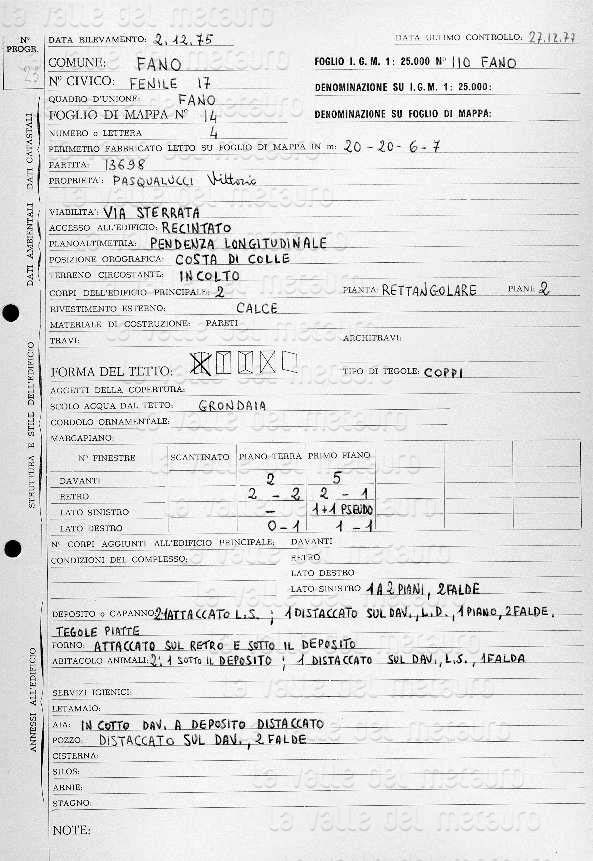 N° PROGR.
23
DATA RILEVAMENTO: 2.12.75
DATA ULTIMO CONTROLLO: 27.12.77
COMUNE: FANO
FOGLIO I. G. M. 1: 25.000 N° 110 FANO
N° CIVICO: FENILE 17
DENOMINAZIONE SU I.G.M. 1: 25.000:
QUADRO D'UNIONE: FANO
FOGLIO DI MAPPA N° 14
DENOMINAZIONE SU FOGLIO DI MAPPA:
NUMERO o LETTERA 4
PERIMETRO FABBRICATO LETTO SU FOGLIO DI MAPPA IN m: 20-20-6-7
PARTITA: 13698
PROPRIETA': PASQUALUCCI Vittorio
DATI CATASTALI
VIABILITA': VIA STERRATA
ACCESSO ALL'EDIFICIO: RECINTATO
PLANOALTIMETRIA: PENDENZA LONGITUDINALE
POSIZIONE OROGRAFICA: COSTA DI COLLE
TERRENO CIRCOSTANTE: INCOLTO
DATI AMBIENTALI
CORPI DELL'EDIFICIO PRINCIPALE: 2
PIANTA: RETTANGOLARE
PIANI: 2
RIVESTIMENTO ESTERNO: CALCE
MATERIALE DI COSTRUZIONE: PARETI
TRAVI:
ARCHITRAVI:
FORMA DEL TETTO:
TIPO DI TEGOLE: COPPI
AGGETTI DELLA COPERTURA:
SCOLO ACQUA DAL TETTO: GRONDAIA
CORDOLO ORNAMENTALE:
MARCAPIANO:
N° FINESTRE SCANTINATO PIANO TERRA PRIMO PIANO
DAVANTI 2 5
RETRO 2 - 2 2 - 1
LATO SINISTRO - 1+1 PSEUDO
LATO DESTRO 0-1 1-1
STRUTTURA E STILE DELL'EDIFICIO
N° CORPI AGGIUNTI ALL'EDIFICIO PRINCIPALE: DAVANTI
CONDIZIONI DEL COMPLESSO: RETRO
LATO DESTRO
LATO SINISTRO 1 A 2 PIANI, 2 FALDE
DEPOSITO o CAPANNO: 2:1 ATTACCATO L.S. ; 1 DISTACCATO SUL DAV., L.D., 1 PIANO, 2 FALDE,
TEGOLE PIATTE
FORNO: ATTACCATO SUL RETRO E SOTTO IL DEPOSITO
ABITACOLO ANIMALI: 2: 1 SOTTO IL DEPOSITO ; 1 DISTACCATO SUL DAV., L.S., 1 FALDA
SERVIZI IGIENICI:
LETAMAIO:
AIA: IN COTTO DAV. A DEPOSITO DISTACCATO
POZZO: DISTACCATO SUL DAV., 2 FALDE
CISTERNA:
SILOS:
ARNIE:
STAGNO:
ANNESSI ALL'EDIFICIO
NOTE:
la valle del metauro